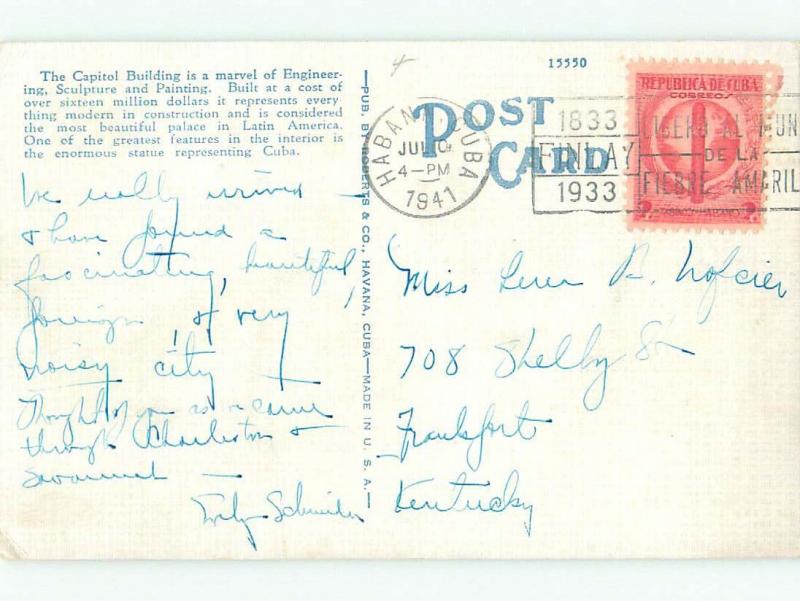 The Capitol Building is a marvel of Engineer-
ing, Sculpture and Painting. Built at a cost of
over sixteen million dollars it represents every-
thing modern in construction and is considered
the most beautiful palace in Latin America.
One of the greatest features in the interior is
the enormous statue representing Cuba.
We really arrived —
& have found a
fascinating, beautiful,
foreign, & very
noisy city —
Thought of you as we came
through Charleston &
Savannah —
Evelyn Schneider
—PUB. BY ROBERTS & CO., HAVANA, CUBA—MADE IN U. S. A.—
4
15550
POST
CARD
HABANA, CUBA
4-PM
1941
1833
FINLAY
1933
LIBERO AL MUN
DE LA
FIEBRE AMARIL
REPUBLICA DE CUBA
CORREOS
Miss R.
708 Shelby St
Frankfort
Kentucky